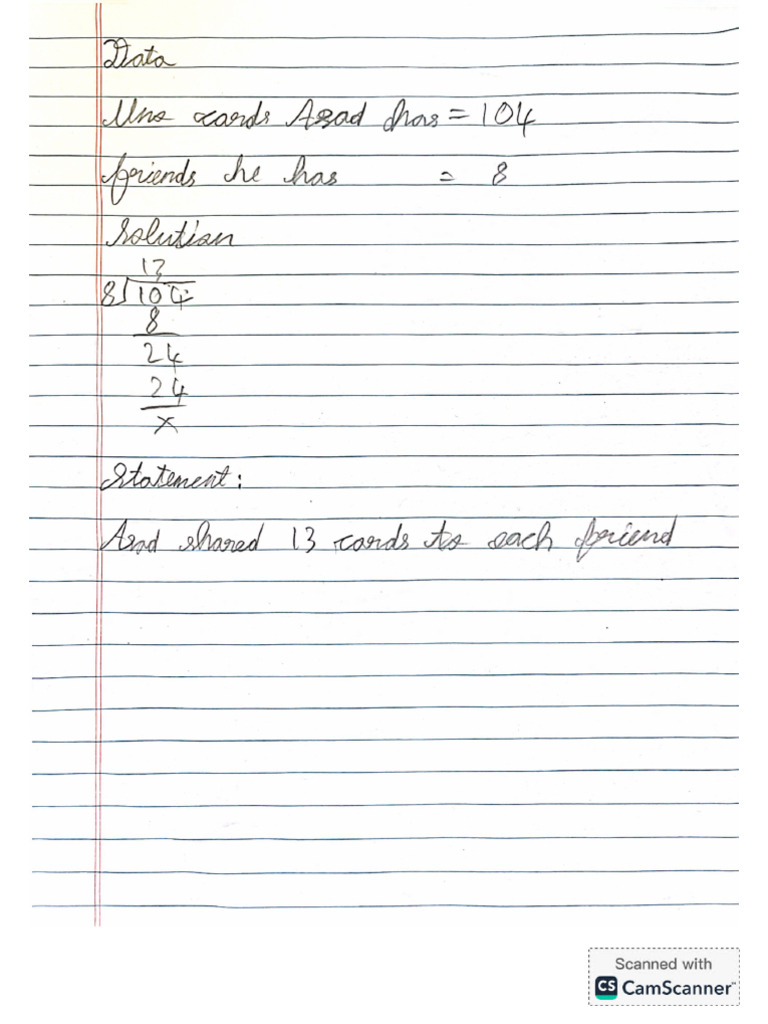 Data
Uno cards Azad has = 104
friends he has = 8
Solution
13
8 104
8
24
24
x
Statement:
Azad shared 13 cards to each friend
Scanned with
CS CamScanner